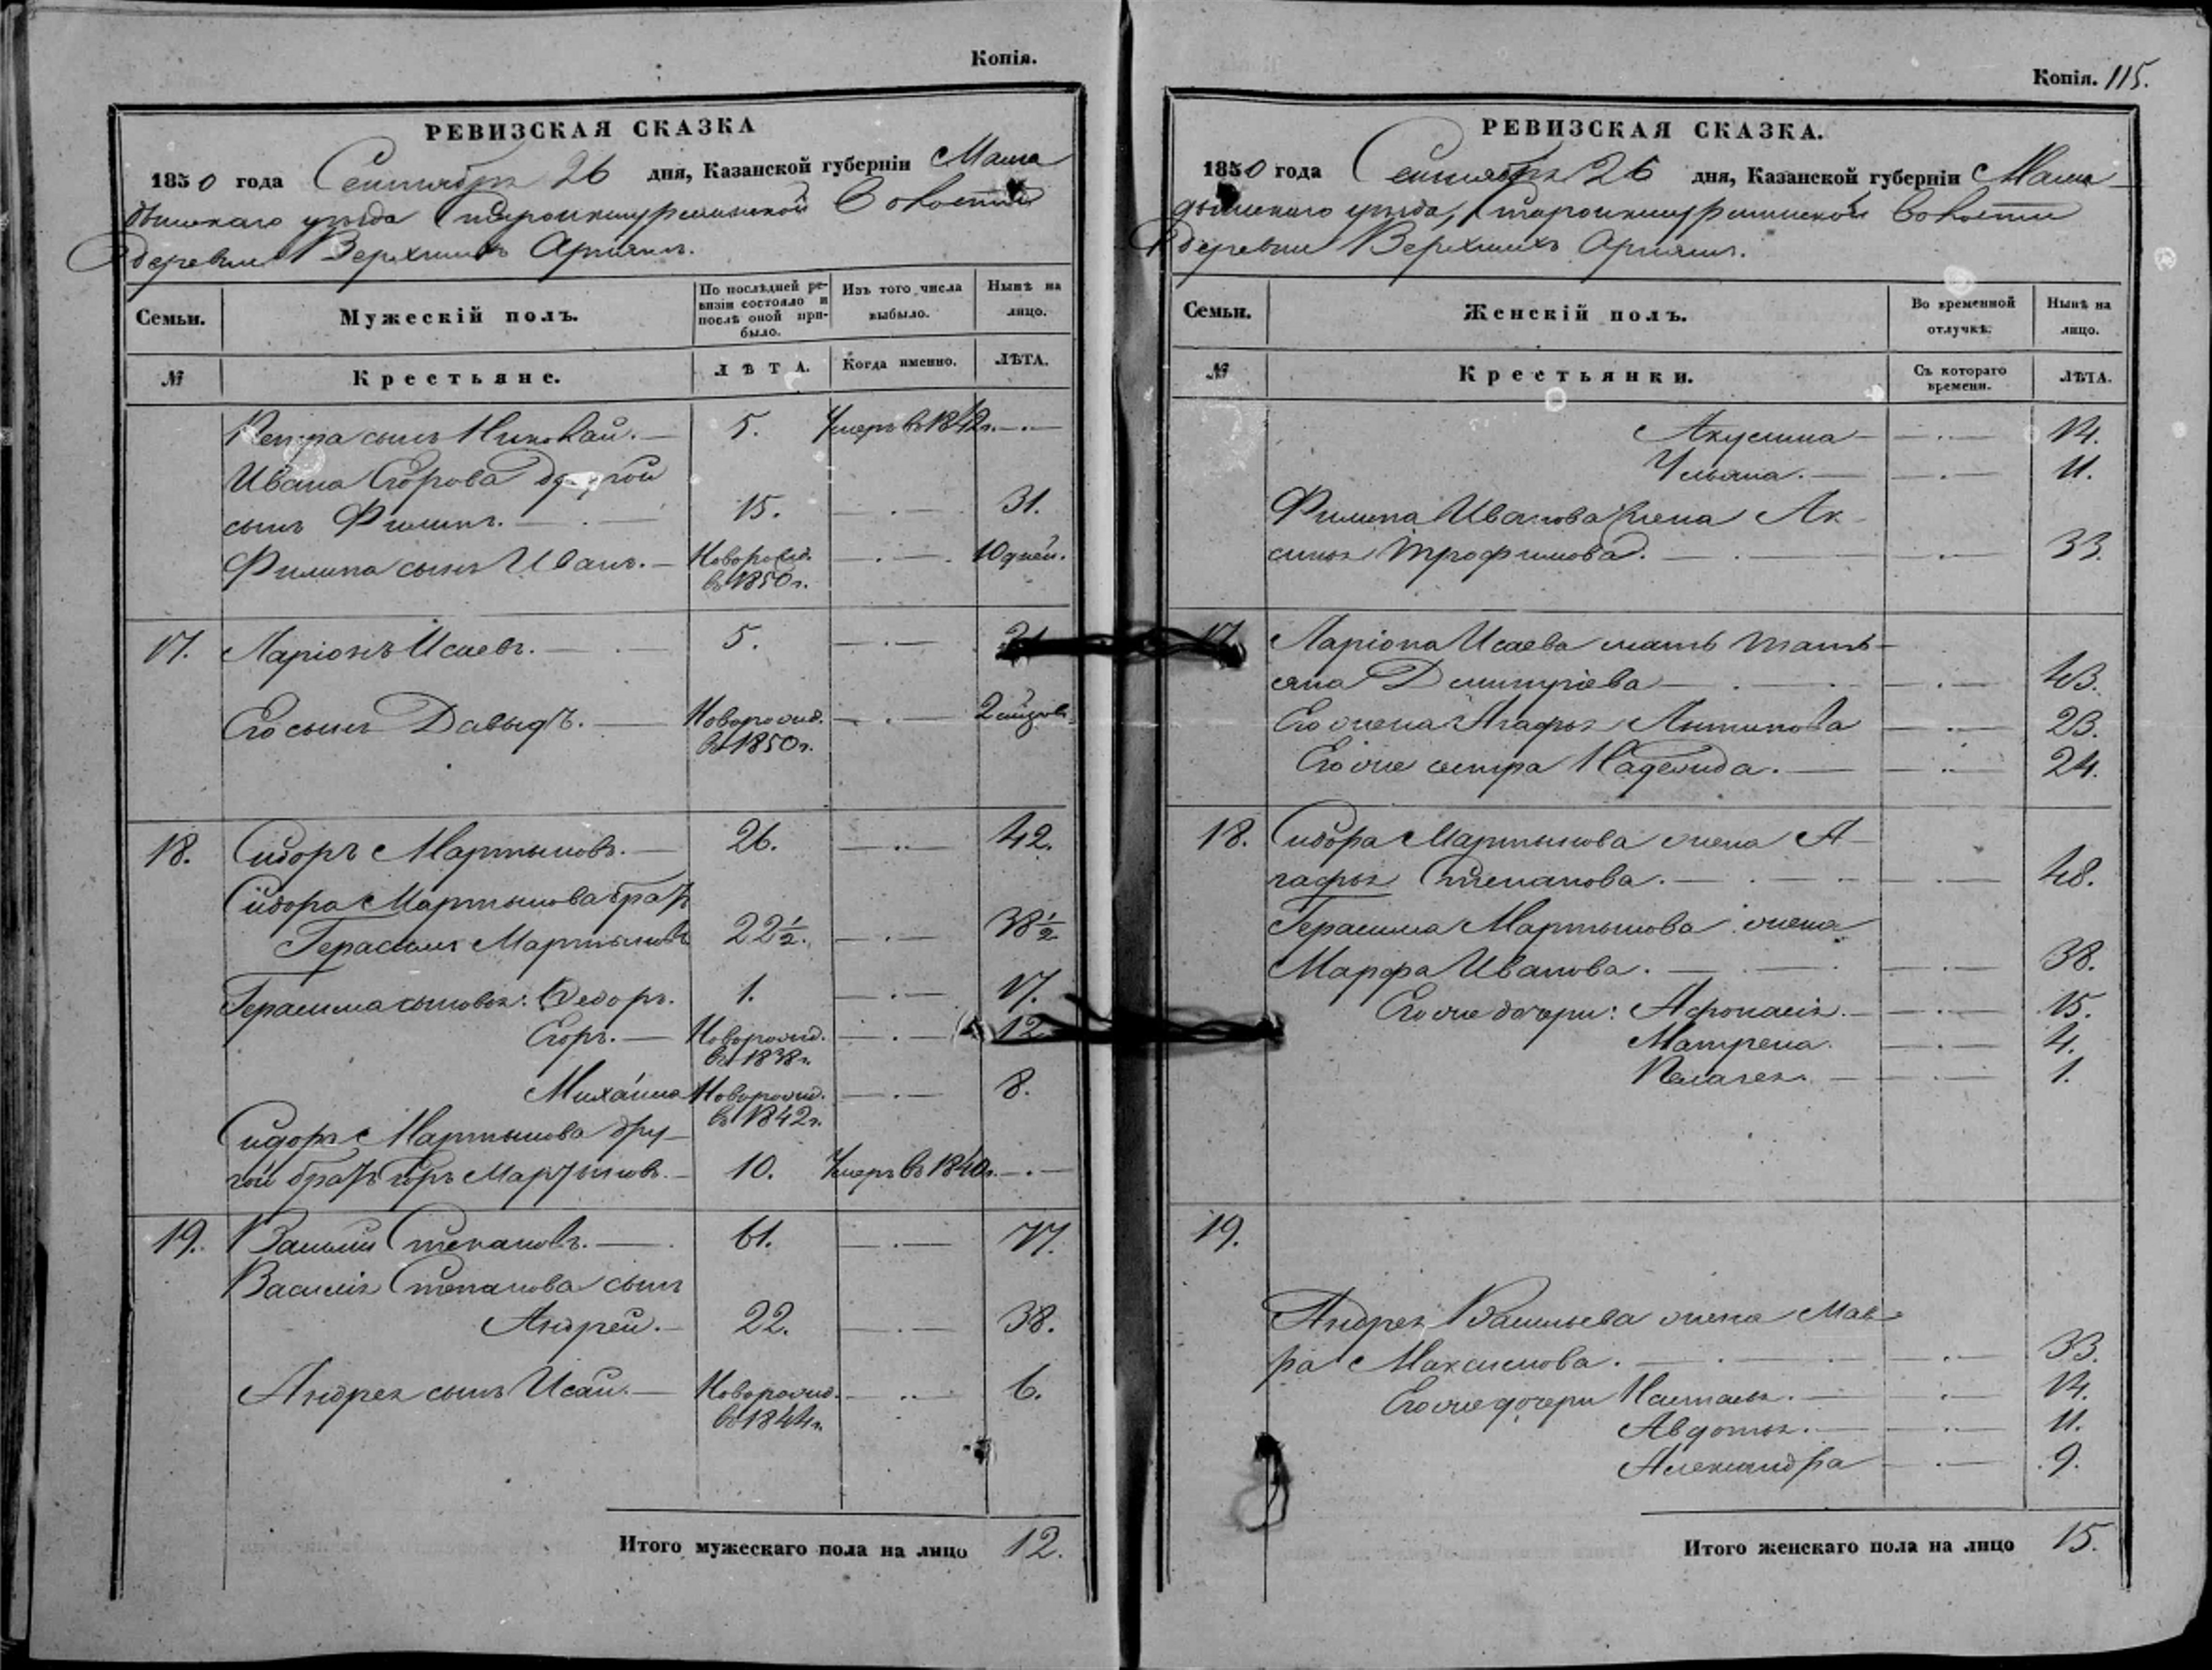 Копія.
РЕВИЗСКАЯ СКАЗКА
1850 года Сентября 26 дня, Казанской губерніи Мама
дышскаго уѣзда Староикшурминской Волости
деревни Верхнихъ Арняшъ.
Семьи. Мужескій полъ. По послѣдней ре-визіи состояло и послѣ оной при-было. Изъ того числа выбыло. Нынѣ на лицо.
№ Крестьяне. ЛѢТА. Когда именно. ЛѢТА.
Петра сынъ Николай. — 5. Умеръ въ 1842г. — . —
Ивана Егорова другой
сынъ Филипъ. — . — 15. — . — 31.
Филипа сынъ Иванъ. — Новорожд. — . — 10 дней.
въ 1850 г.
17. Ларіонъ Исаевъ. — . — 5. — . — 21
Его сынъ Давыдъ. — Новорожд. — . —
въ 1850 г.
18. Сидоръ Мартыновъ. — 26. — . — 42.
Сидора Мартынова братъ
Герасимъ Мартыновъ 22½. — . — 38½
Герасима сыновья: Федоръ. 1. — . — 17.
Егоръ. — Новорожд. — . — 12
въ 1838 г.
Михайла Новорожд. — . — 8.
въ 1842 г.
Сидора Мартынова дру-
гой братъ Егоръ Мартыновъ. — 10. Умеръ въ 1840г. — . —
19. Василій Степановъ. — . 61. — . — 77.
Василья Степанова сынъ
Андрей. — 22. — . — 38.
Андрея сынъ Исай. — Новорожд. — . — 6.
въ 1844 г.
Итого мужескаго пола на лицо 12.
Копія. 115.
РЕВИЗСКАЯ СКАЗКА.
1850 года Сентября 26 дня, Казанской губерніи Мама —
дышскаго уѣзда, Староикшурминской Волости
деревни Верхнихъ Арняшъ.
Семьи. Женскій полъ. Во временной отлучкѣ. Нынѣ на лицо.
№ Крестьянки. Съ котораго времени. ЛѢТА.
Акулина — — . — 14.
Ульяна. — — . — 11.
Филипа Иванова жена Ак-
синья Трофимова. — — . — 33.
17. Ларіона Исаева мать Тать-
яна Дмитріева — . — — . — 43.
Его жена Агафья Антипова — . — 23.
Его же сестра Надежда. — — . — 24.
18. Сидора Мартынова жена А-
гафья Степанова. — . — — . — 48.
Герасима Мартынова жена
Марфа Иванова. — . — — . — 38.
Его же дочери: Афонасія. — — . — 15.
Матрена. — . — 4.
Пелагея. — — . — 1.
19.
Андрея Васильева жена Мав-
ра Максимова. — . — — . — 33.
Его же дочери Настасья. — — . — 14.
Авдотья. — — . — 11.
Александра — . — 9.
Итого женскаго пола на лицо 15.